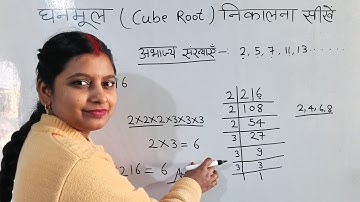 घनमूल ( Cube Root ) निकालना सीखें
अभाज्य संख्याएँ - 2, 5, 7, 11, 13 ......
6
2×2×2×3×3×3
2×3 = 6
216 = 6
2 | 216
2 | 108
2 | 54
3 | 27
3 | 9
3 | 3
1
2, 4, 6, 8